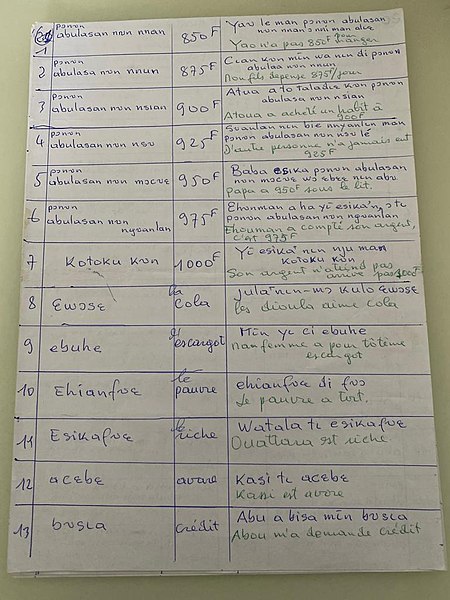 ponun
abulasan nun nnan
850F
Yao le man ponun abulasan
nun nnan
Yao n'a pas 850F pour manger
2
ponun
abulasa nun nnun
875F
Cian kun min wa nun di ponun
abulaa nun nnun
Mon fils depense 875F/jour
3
ponun
abulasan nun nsian
900F
Atua a to taladie kun ponun
abulasa nun nsian
Atoua a acheté un habit à
900F
4
ponun
abulasan nun nsu
925F
ponun abulasan nun nsu lé
D'autre personne n'a jamais eut
925F
5
ponun
abulasan nun mɔcuɛ
950F
Baba esika ponun abulasan
nun mɔcuɛ wɔ ɛbɛɛ nun abu
Papa a 950F sous le lit.
6
ponun
abulasan nun
nguanlan
975F
Ehonman a ha yi esika'n ɔ ti
ponun abulasan nun nguanlan
Ehouman a compté son argent,
c'est 975F
7
Kotoku kun
1000F
Yi esika'nin nju man
kotoku kun
Son argent n'atteind pas
arrive pas 1000F
8
Ɛwɔsɛ
la
Cola
Jula'nin-mɔ kulo ɛwɔsɛ
les dioula aime cola
9
ebuhe
escargot
Min yi ci ebuhe
Ma femme a pour tôtème
escargot
10
Ehianfuɛ
le
pauvre
ehianfuɛ di fuɔ
Le pauvre a tort.
11
Esikafuɛ
le
riche
Watala ti esikafuɛ
Ouattara est riche.
12
acɛbɛ
avare
Kasi ti acɛbɛ
Kassi est avare
13
bosia
crédit
Abu a bisa min bosia
Abou m'a demandé crédit